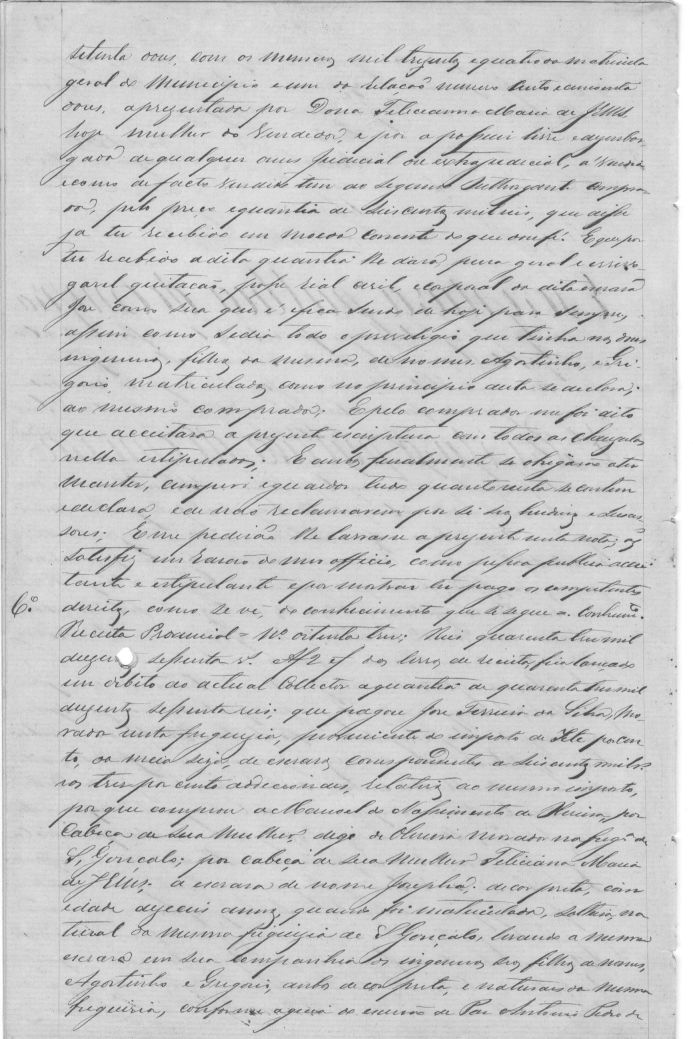 setenta e dous, com os numeros mil trezentos e quatro da matricula
geral do Municipio e um da relação numero cento e cincoenta
e dous, aprezentada por Dona Felicianna Maria de Jesus
hoje mulher do vendedor, e por a possuir livre e dezembar-
gada de qualquer onus judicial ou extrajudicial, a vende
e como de facto vendido tem ao segundo outhorgante compra-
dor, pelo preço e quantia de seiscentos mil reis, que disse
já ter recebido em moeda corrente do que dou fé. E que por
ter recebido a dita quantia lhe dava, plena geral e irrevo-
gavel quitação, posse real civil, e corporal da dita escrava
por como sua que é e fica sendo de hoje para sempre,
assim como cedia todo o previlegio que tinha nos dous
ingenuos, filhos da mesma, de nomes Agostinho, e Gri-
gorio matriculados como no principio desta se declara,
ao mesmo comprador. E pelo comprador me foi dito
que acceitava a prezente escriptura com todas as clauzulas
nella estipuladas. E ambos finalmente se obrigarão a ter
manter, cumprir e guardar tudo quanto nesta se contem
e declara, e de não reclamarem por si seus herdeiros e succes-
sores; E me pedirão lhe lavrasse a prezente nesta nota; o q
satisfiz em razão do meu officio, como pessoa publica accei-
tante e estipulante e por mostrar ter pago os competentes
6º direitos, como se vê, do conhecimento que se segue
Receita Provincial = Nº oitenta tres; Reis quarenta tres mil
duzentos sessenta rs. Af 2 do livro de receita, fica lançado
em debito ao actual Collector a quantia de quarenta tres mil
duzentos sessenta reis; que pagou José Ferreira da Silva, mo-
rador nesta freguezia, proveniente do imposto de sete por cen-
to, da meia siza, de escravos correspondente a seiscentos mil reis
tres por cento addeccionaes, relativos ao mesmo imposto,
por que comprou a Manoel do Nascimento de por
Cabeça de sua mulher digo de Oliveira morador na fregª de
S. Gonçalo; por cabeça de sua mulher Feliciana Maria
de Jesus. a escrava de nome Josepha. de cor preta, com
idade dezeseis annos, quando foi matriculada, solteira, na-
tural da mesma freguezia de S Gonçalo, levando a mesma
escrava em sua companhia os ingenuos seus filhos de nomes,
Agostinho e Gregorio, ambos de cor preta, e naturaes da mesma
freguezia, conforme a guia do escrivão de Paz Antonio Pedro de